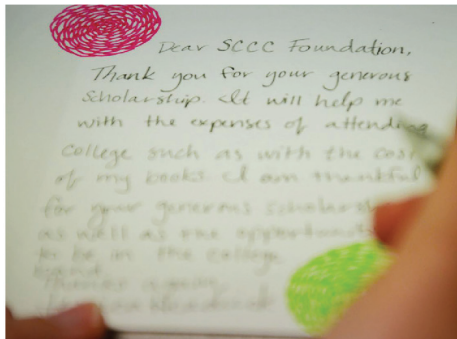 Dear SCCC Foundation,
Thank you for your generous
Scholarship. It will help me
with the expenses of attending
college such as with the cost
of my books. I am thankful
for your generous scholarship
as well as the opportunity
to be in the college
band.
Thanks again,